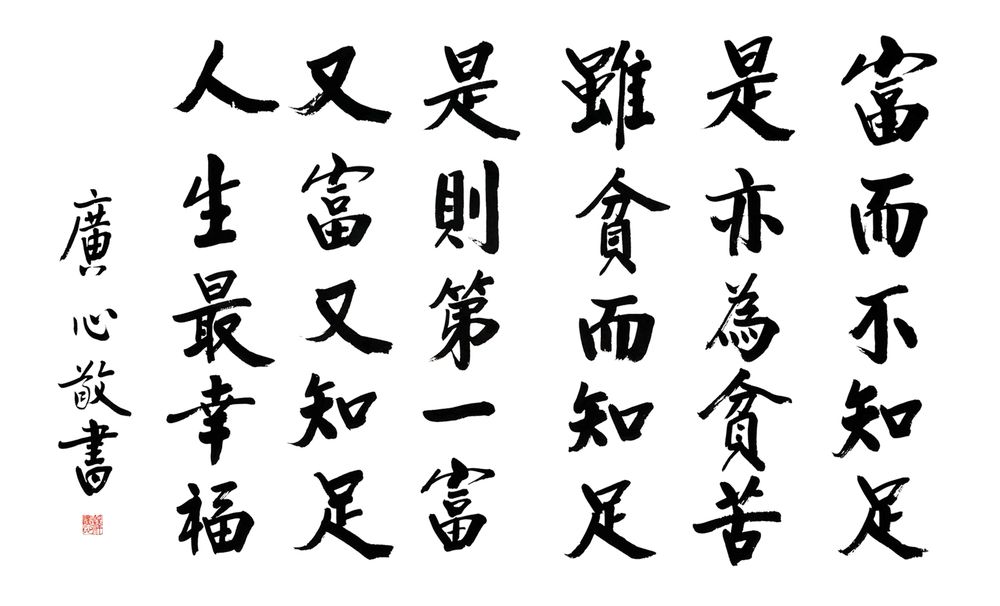 富而不知足
是亦為貧苦
雖貧而知足
是則第一富
又富又知足
人生最幸福
廣心敬書